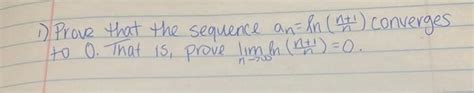 1) Prove that the sequence an = ln(n+1/n) converges
to 0. That is, prove lim n→∞ ln(n+1/n) = 0.